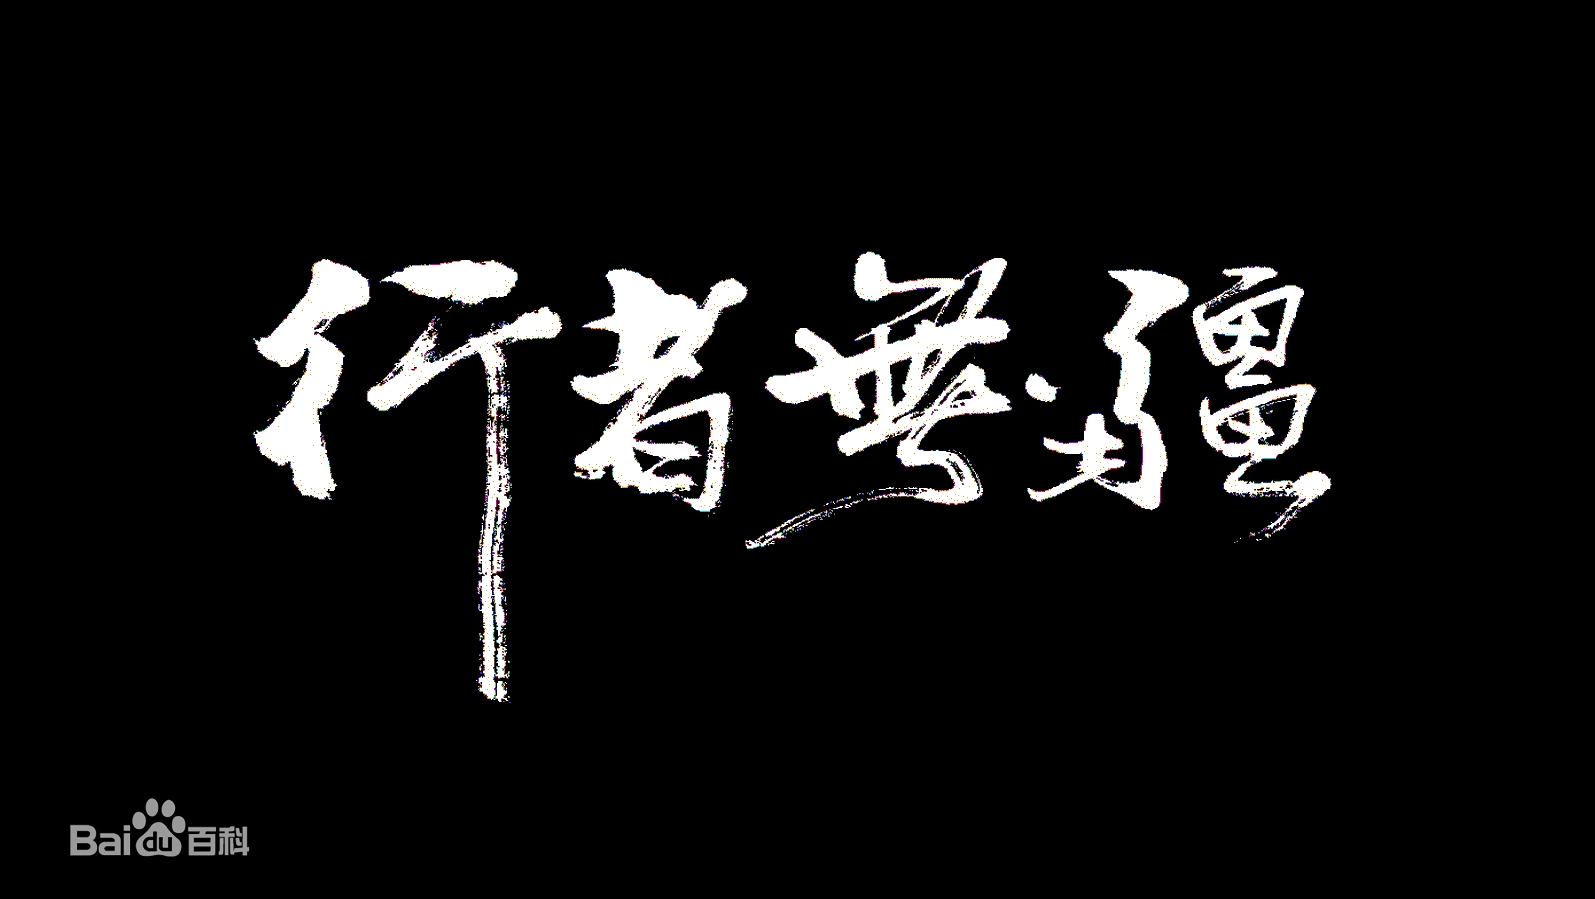 行者無疆
Baidu百科